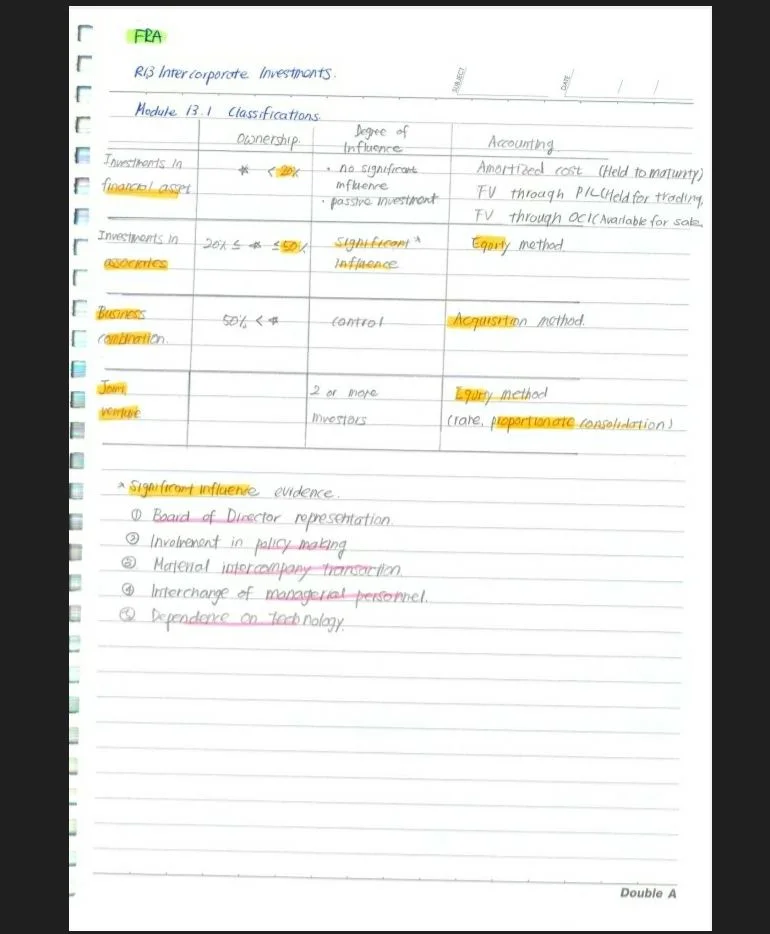 FRA
R13 Intercorporate Investments.
SUBJECT
DATE / /
Module 13.1 Classifications
Ownership. Degree of Influence Accounting
Investments in * < 20% • no significant Amortized cost (Held to maturity)
financial asset influence FV through P/L (Held for trading,
• passive investment FV through OCI (Available for sale,
Investments in 20% ≤ * ≤ 50% Significant * Equity method
associates Influence
Business 50% < * control Acquisition method.
combination.
Joint 2 or more Equity method
venture investors (rare, proportionate consolidation)
* Significant influence evidence.
① Board of Director representation.
② Involvement in policy making
③ Material intercompany transaction.
④ Interchange of managerial personnel.
⑤ Dependence on technology.
Double A